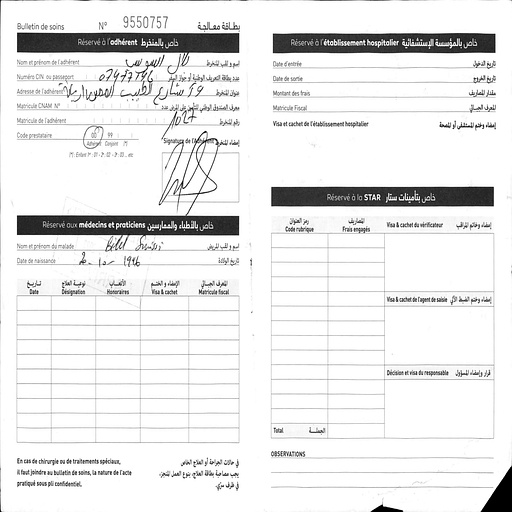 Bulletin de soins N° 9550757 بطاقة معالجة
Réservé à l'adhérent خاص بالمنخرط
Nom et prénom de l'adhérent اسم و لقب المنخرط
Numéro CIN ou passeport عدد بطاقة التعريف الوطنية أو جواز السفر
Adresse de l'adhérent عنوان المنخرط
Matricule CNAM N°
Matricule de l'adhérent رقم المنخرط
1027
Code prestataire 00 99
Adhérent Conjoint (*)
Signature de l'adhérent إمضاء المنخرط
(*) : Enfant 1er : 01 - 2 : 02 - 3 : 03 ... etc
Réservé aux médecins et praticiens خاص بالأطباء والممارسين
Nom et prénom du malade Bilel اسم و لقب المريض
Date de naissance 20-10-1996 تاريخ الولادة
تاريخ نوعية العلاج الأتعاب الإمضاء و الختم المعرف الجبائي
Date Désignation Honoraires Visa & cachet Matricule fiscal
En cas de chirurgie ou de traitements spéciaux,
il faut joindre au bulletin de soins, la nature de l'acte
pratiqué sous pli confidentiel.
في حالات الجراحة أو العلاج الخاص
يجب مصاحبة بطاقة العلاج، بنوع العمل المنجز،
في ظرف سري.
Réservé à l'établissement hospitalier خاص بالمؤسسة الإستشفائية
Date d'entrée تاريخ الدخول
Date de sortie تاريخ الخروج
Montant des frais مقدار المصاريف
Matricule Fiscal المعرف الجبائي
Visa et cachet de l'établissement hospitalier إمضاء وختم المستشفى أو المصحة
Réservé à la STAR خاص بتأمينات ستار
رمز العنوان المصاريف
Code rubrique Frais engagés
Visa & cachet du vérificateur إمضاء وخاتم المراقب
Visa & cachet de l'agent de saisie إمضاء وختم الضبط الآلي
Décision et visa du responsable قرار وإمضاء المسؤول
Total الجملة
OBSERVATIONS